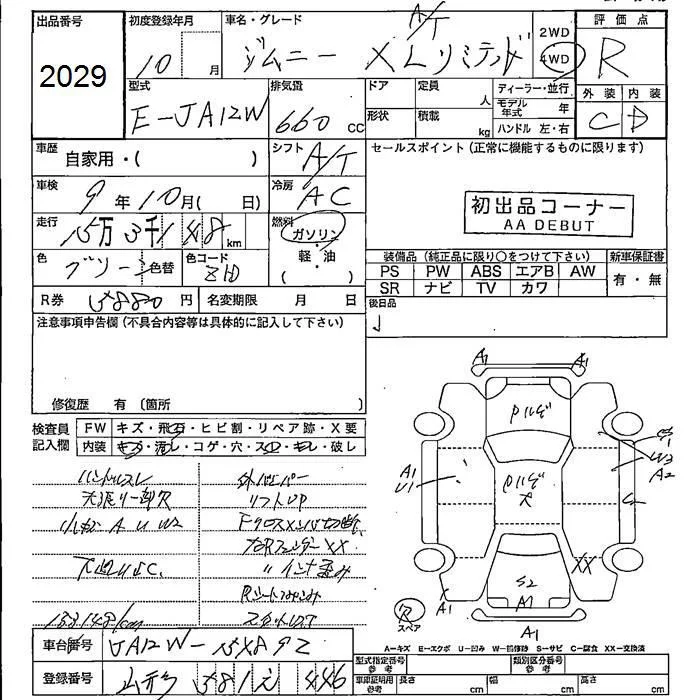 出品番号
2029
初度登録年月
10 月
車名・グレード
A/T
ジムニー XLリミテッド
2WD
4WD
評価点
R
外装 内装
C D
型式
E-JA12W
排気畳
660 cc
ドア
定員
人
形状
積載
kg
ディーラー・並行
モデル年式 年
ハンドル 左・右
車歴
自家用・( )
シフト
A/T
セールスポイント(正常に機能するものに限ります)
車検
9年10月( 日)
冷房
AC
初出品コーナー
AA DEBUT
走行
15万3千148km
燃料
ガソリン
・
軽・油
( )
色
グリーン
色替
色コード
ZJD
装備品(純正品に限り○をつけて下さい)
新車保証書
PS PW ABS エアB AW
SR ナビ TV カワ
有・無
R券 円
名変期限 月 日
後日品
注意事項申告欄(不具合内容等は具体的に記入して下さい)
修復歴 有〔箇所 〕
検査員記入欄
FW キズ・飛石・ヒビ割・リペア跡・X要
内装 キズ・汚レ・コゲ・穴・スレ・キレ・破レ
ハンドルスレ
外バンパー
リフトUP
小キズ A U W2
右Rフェンダー XX
〃インナー歪み
下廻りサビC.
153148km
A1
A1
A1
U1
W3
A2
XX
S2
A1
A1
A1
R
スペア
A-キズ E-エクボ U-凹み W-補修跡 S-サビ C-腐食 XX-交換済
車台番号
JA12W-
登録番号
446
型式指定番号
参考
類別区分番号
参考
車庫証明用
参考
長さ cm
幅 cm
高さ cm